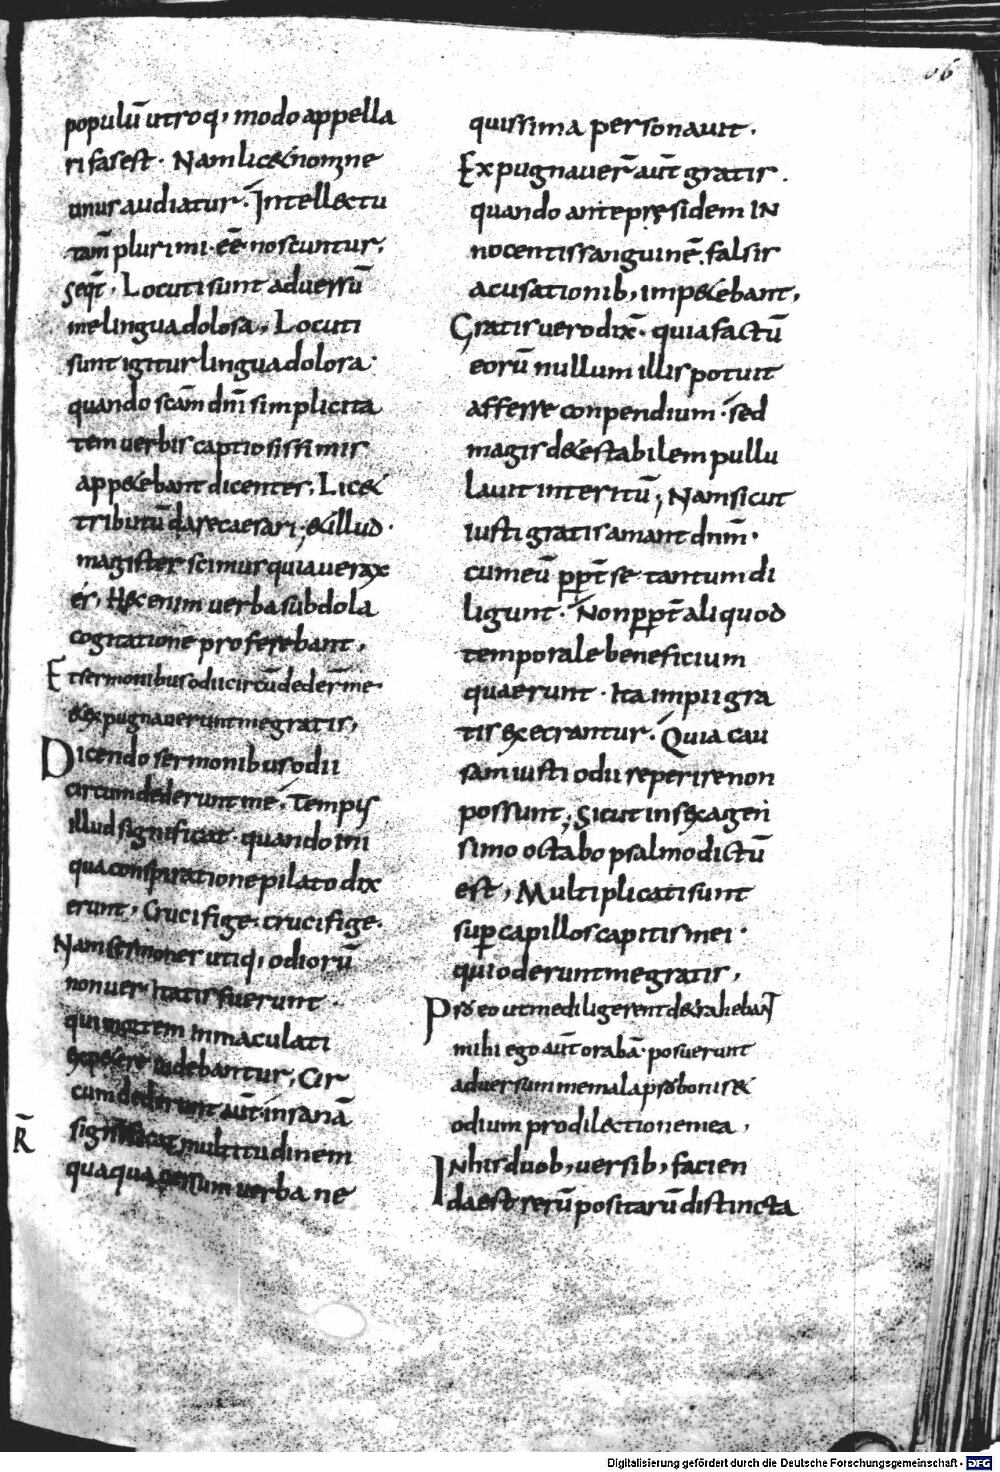 06
populū utroq; modo appella
ri fas est. Nam licet nomine
unus audiatur. Intellectu
tam̄ plurimi. eē noscuntur;
Seqt̄; Locuti sunt adversū
me lingua dolosa; Locuti
sunt igitur lingua dolosa.
quando scām dnī simplicita
tem verbis captiosissimis
appetebant dicentes; Licet
tributū dare caesari; et illud.
magister scimus quia verax
es; Hęc enim verba subdola
cogitatione proferebant;
Et sermonibus odii circūdederr̄ me
et expugnaverunt me gratis;
Dicendo sermonibus odii
circumdederunt me; Tempus
illud significat. quando ini
qua conspiratione pilato dix
erunt; Crucifige. crucifige.
Nam sermones utiq; odiorū
non veritatis fuerunt.
qui mortem inmaculati
expetere videbantur; Cir
cumdederunt aut̄ insanā
significat multitudinem
R̄
quaqua versum verba ne
quissima personavit.
Expugnaver̄ aut̄ gratis.
quando ante pręsidem IN
nocentis sanguinē. falsis
acusationib; impetebant;
Gratis vero dix̄. quia factū
eorū nullum illis potuit
afferre conpendium. sed
magis detestabilem pullu
lavit interitū; Nam sicut
iusti gratis amant dnm̄.
cum eū ppt̄ se tantum di
ligunt. Non ppt̄ aliquod
temporale beneficium
quaerunt. Ita impii gra
tis execrantur. Quia cau
sam iusti odii reperire non
possunt; Sicut in sexagen
simo octabo psalmo dictū
est; Multiplicati sunt
sup capillos capitis mei.
qui oderunt me gratis;
Pro eo ut me diligerent detrahebant
mihi ego aut̄ orabā. posuerunt
adversum me mala pro bonis et
odium pro dilectione mea;
In his duob; versib; facien
da est rerū positarū distincta
Digitalisierung gefördert durch die Deutsche Forschungsgemeinschaft - DFG